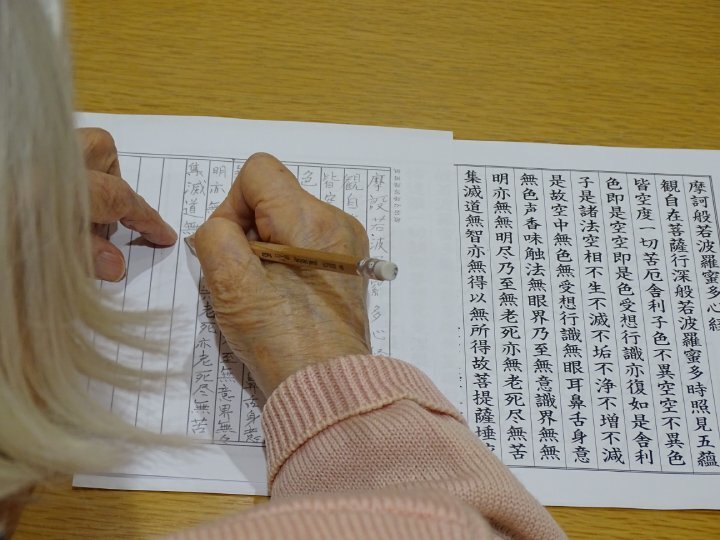 摩訶般若波羅蜜多心経
観自在菩薩行深般若波羅蜜多時照見五蘊
皆空度一切苦厄舎利子色不異空空不異色
色即是空空即是色受想行識亦復如是舎利
子是諸法空相不生不滅不垢不浄不増不減
是故空中無色無受想行識無眼耳鼻舌身意
無色声香味触法無眼界乃至無意識界無無
明亦無無明尽乃至無老死亦無老死尽無苦
集滅道無智亦無得以無所得故菩提薩埵
摩 若波 多心
観自
皆空
色
舌身
至無意界無
明亦 老死亦老死尽無苦
集滅道無